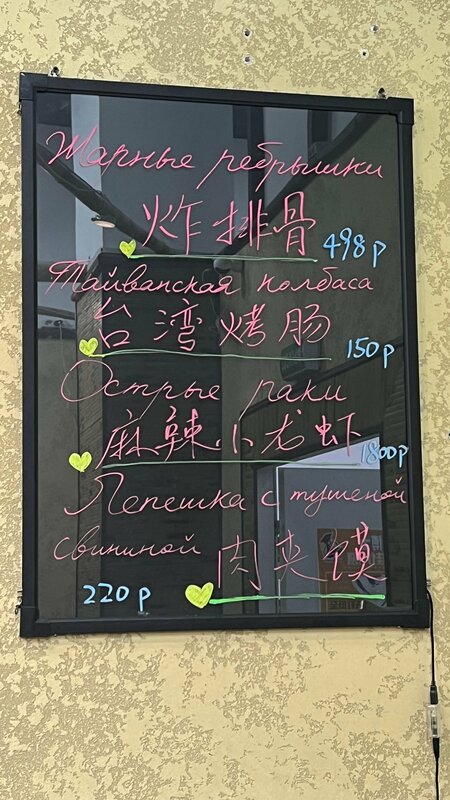 Жарные ребрышки
炸排骨 498р
Тайванская колбаса
台湾烤肠 150р
Острые раки
麻辣小龙虾 1800р
Лепешка с тушеной
свининой 肉夹馍
220 р